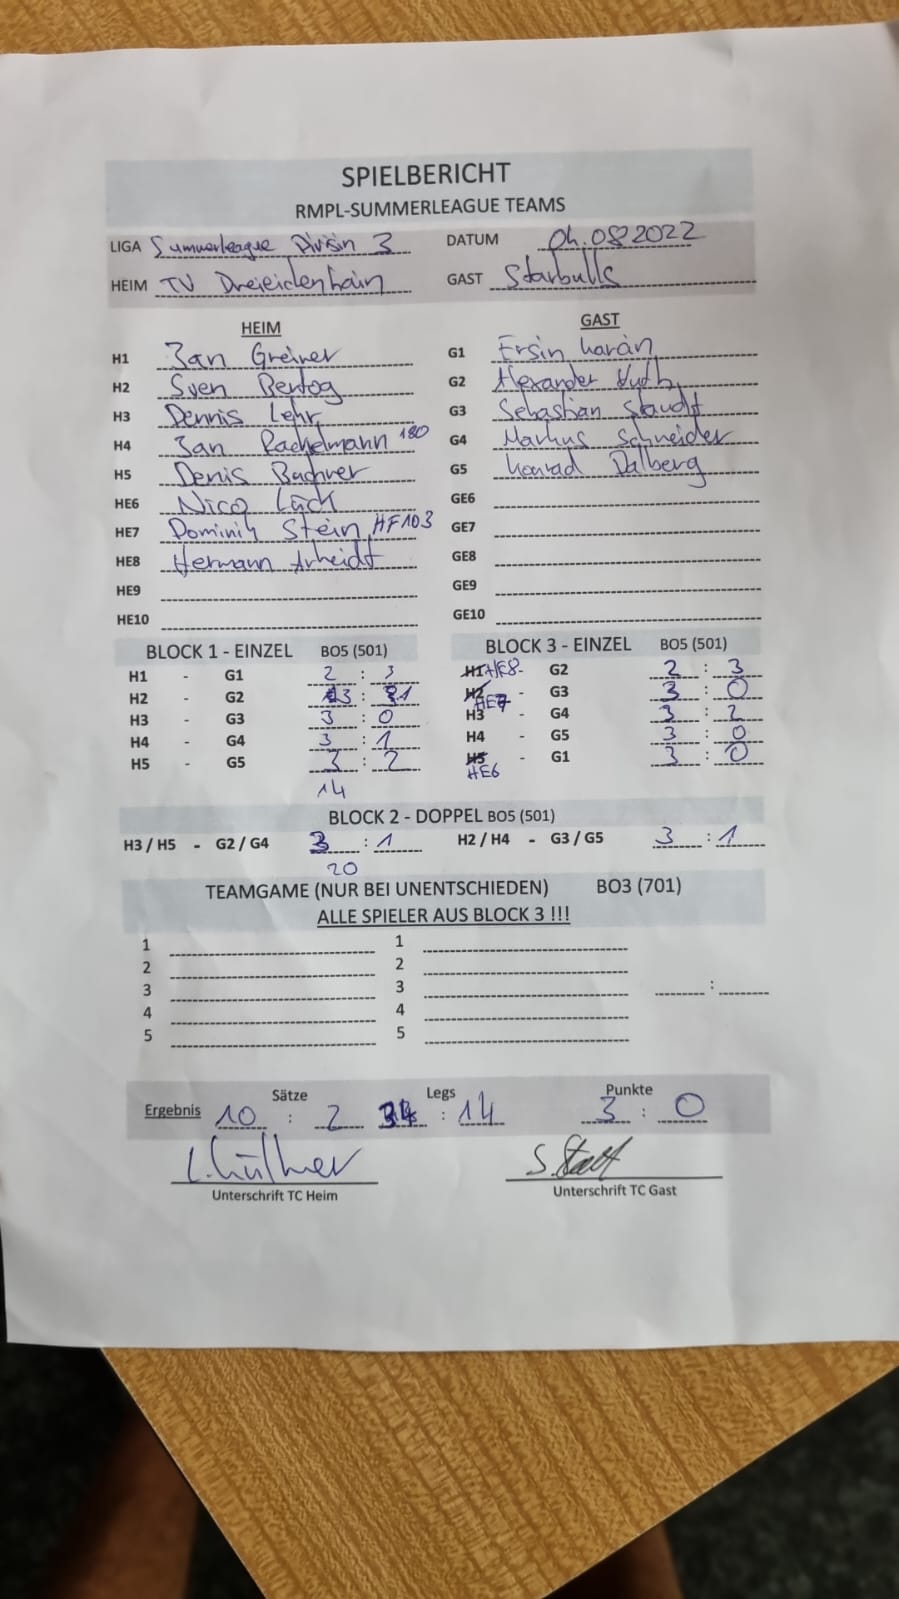 SPIELBERICHT
RMPL-SUMMERLEAGUE TEAMS
LIGA Summerleague Divisin 3 DATUM 04.08.2022
HEIM TV Dreieichenhain GAST Starbulls
HEIM GAST
H1 Jan Greiner G1 Ersin Karan
H2 Sven G2 Alexander
H3 Dennis Lehr G3 Sebastian Staudt
H4 Jan Rachelmann 180 G4 Markus Schneider
H5 Denis Bachner G5 Konrad Dalberg
HE6 Nico Lück GE6
HE7 Dominik Stein HF103 GE7
HE8 Hermann Arheidt GE8
HE9 GE9
HE10 GE10
BLOCK 1 - EINZEL BO5 (501) BLOCK 3 - EINZEL BO5 (501)
H1 - G1 2 : 3 H1 HE8 - G2 2 : 3
H2 - G2 3 : 1 H2 HE7 - G3 3 : 0
H3 - G3 3 : 0 H3 - G4 3 : 2
H4 - G4 3 : 1 H4 - G5 3 : 0
H5 - G5 3 : 2 H5 HE6 - G1 3 : 0
14
BLOCK 2 - DOPPEL BO5 (501)
H3 / H5 - G2 / G4 3 : 1 H2 / H4 - G3 / G5 3 : 1
20
TEAMGAME (NUR BEI UNENTSCHIEDEN) BO3 (701)
ALLE SPIELER AUS BLOCK 3 !!!
1 1
2 2
3 3 :
4 4
5 5
Sätze Legs Punkte
Ergebnis 10 : 2 34 : 14 3 : 0
Unterschrift TC Heim Unterschrift TC Gast